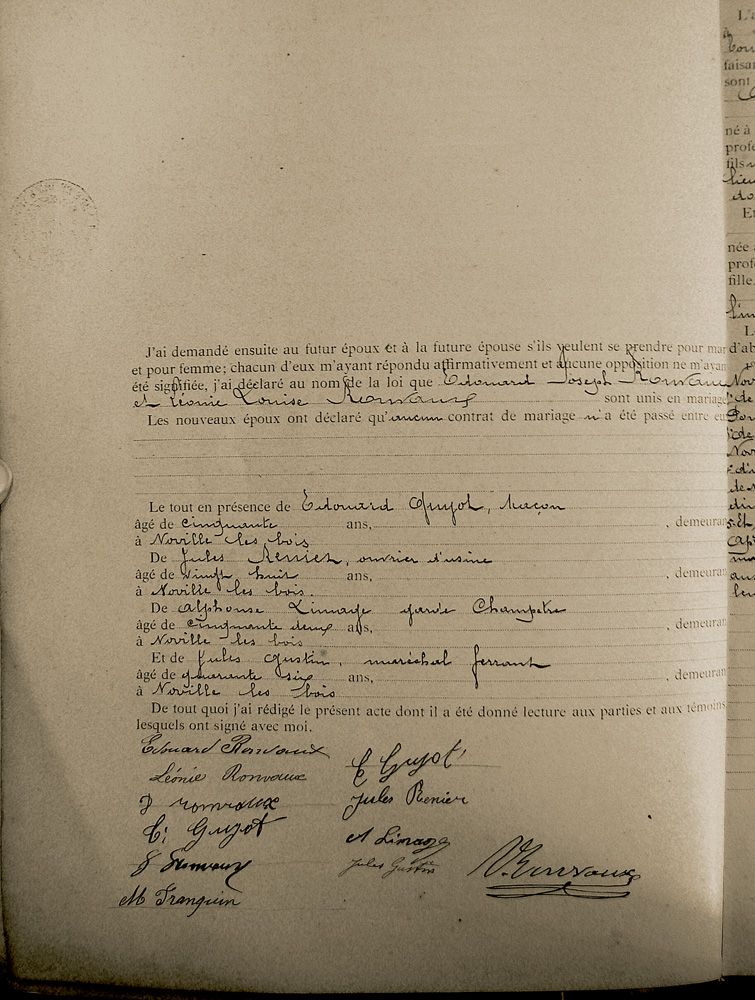 J'ai demandé ensuite au futur époux et à la future épouse s'ils veulent se prendre pour mar
et pour femme; chacun d'eux m'ayant répondu affirmativement et aucune opposition ne m'ayan
été signifiée, j'ai déclaré au nom de la loi que Edouard Joseph Ronvaux
et Léonie Louise Ronvaux sont unis en mariage
Les nouveaux époux ont déclaré qu'aucun contrat de mariage n'a été passé entre eu
Le tout en présence de Edouard Guyot, Maçon
âgé de cinquante ans, , demeuran
à Noville les bois
De Jules Renier, ouvrier d'usine
âgé de vingt huit ans, , demeuran
à Noville les bois.
De Alphonse Limage garde Champetre
âgé de cinquante deux ans, , demeuran
à Noville les bois
Et de Jules Gustin, maréchal ferrant
âgé de quarante six ans, , demeuran
à Noville les bois
De tout quoi j'ai rédigé le présent acte dont il a été donné lecture aux parties et aux témoins
lesquels ont signé avec moi.
Edouard Ronvaux
E Guyot
Léonie Ronvaux
J ronvaux
Jules Renier
C; Guyot
A Limage
Jules Gustin
V. Ronvaux
M Franquin
L'a
faisan
sont
né à
profe
fils
Et
née à
profe
fille
L
d'ab